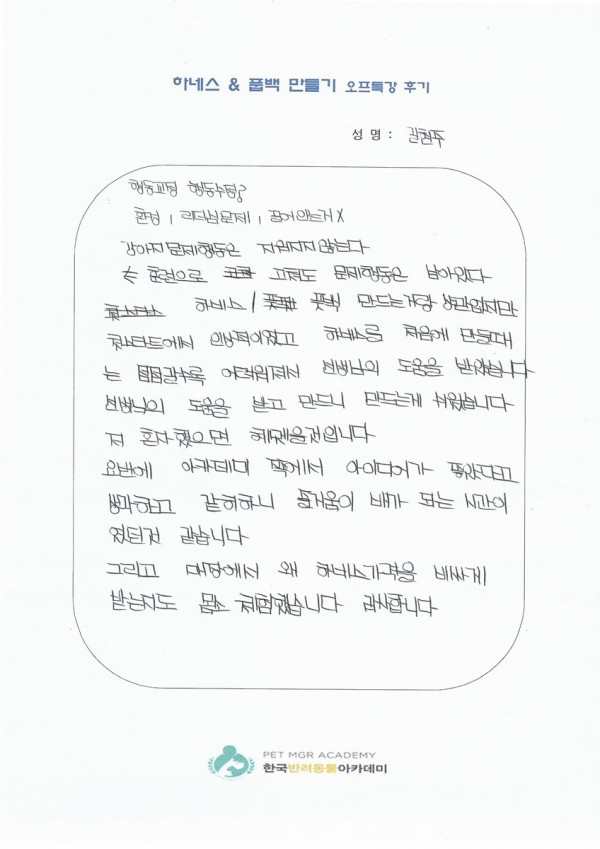 하네스 & 풉백 만들기 오프특강 후기
성 명 : 길현주
행동교정 행동수정?
환경, 리더쉽문제, 끊어앉는거 X
강아지 문제행동은 지워지지않는다
< 혼경으로 고쳐도 문제행동은 남아있다
하네스 / 풋백 만드는거랑 상관없지만
첫스타트에서 인상적이였고 하네스를 처음에 만들때
는 점점갈수록 어려워져서 선생님의 도움을 받았습니다
선생님의 도움을 받고 만드니 만드는게 쉬웠습니다
저 혼자했으면 헤멨을것입니다
요번에 아카데미 쪽에서 아이디어가 좋았다고
생각하고 같히하니 즐거움이 배가 되는 시간이
였던것 같습니다
그리고 매장에서 왜 하네스가격을 비싸게
받는지도 몸소 체험했습니다 감사합니다
PET MGR ACADEMY
한국반려동물아카데미